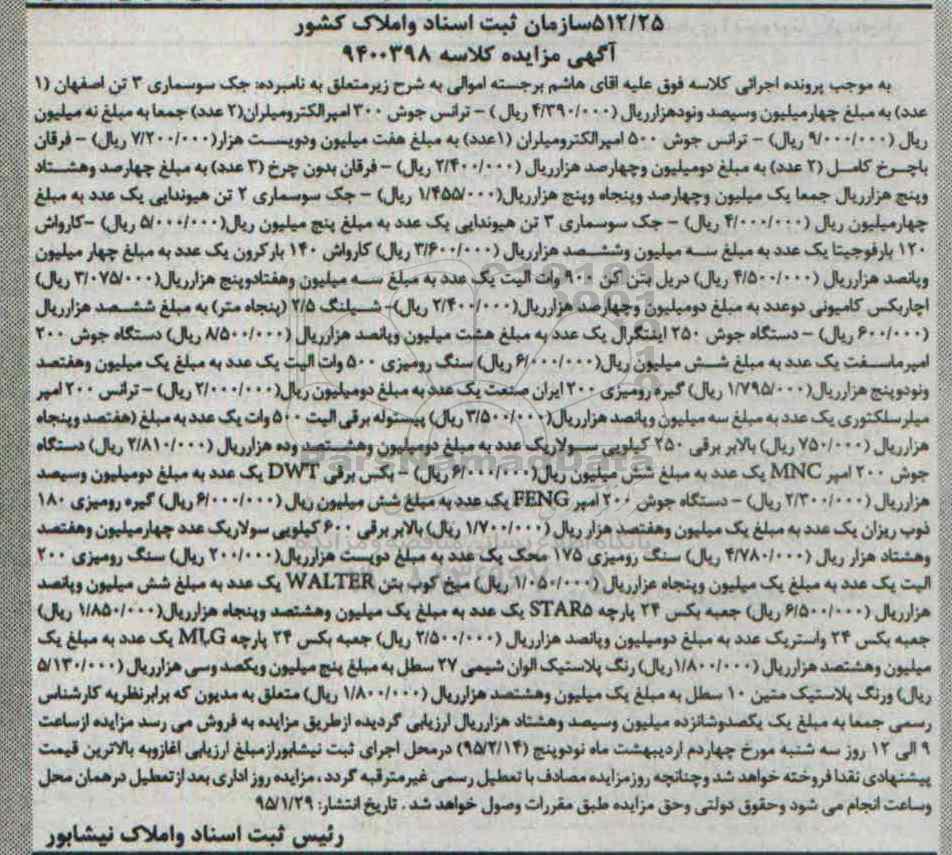 ۵۱۲/۲۵سازمان ثبت اسناد واملاک کشور
آگهی مزایده کلاسه ۹۴۰۰۳۹۸
به موجب پرونده اجرائی کلاسه فوق علیه اقای هاشم برجسته اموالی به شرح زیرمتعلق به نامبرده: جک سوسماری ۳ تن اصفهان (۱
عدد) به مبلغ چهارمیلیون وسیصد ونودهزارریال (۴/۳۹۰/۰۰۰ ریال ) - ترانس جوش ۳۰۰ امپرالکترومیلران(۲ عدد) جمعا به مبلغ نه میلیون
ریال (۹/۰۰۰/۰۰۰ ریال) - ترانس جوش ۵۰۰ امپرالکترومیلران (۱عدد) به مبلغ هفت میلیون ودویست هزار(۷/۲۰۰/۰۰۰ ریال) - فرقان
باچرخ کامل (۲ عدد) به مبلغ دومیلیون وچهارصد هزارریال (۲/۴۰۰/۰۰۰ ریال) - فرقان بدون چرخ (۳ عدد) به مبلغ چهارصد وهشتاد
وپنج هزارریال جمعا یک میلیون وچهارصد وپنجاه وپنج هزارریال(۱/۴۵۵/۰۰۰ ریال) - جک سوسماری ۲ تن هیوندایی یک عدد به مبلغ
چهارمیلیون ریال (۴/۰۰۰/۰۰۰ ریال) - جک سوسماری ۳ تن هیوندایی یک عدد به مبلغ پنج میلیون ریال(۵/۰۰۰/۰۰۰ ریال) -کارواش
۱۲۰ بارفوجیتا یک عدد به مبلغ سه میلیون وششصد هزارریال (۳/۶۰۰/۰۰۰ ریال) کارواش ۱۴۰ بارکرون یک عدد به مبلغ چهار میلیون
وپانصد هزارریال (۴/۵۰۰/۰۰۰ ریال) دریل بتن کن ۹۰۰ وات الیت یک عدد به مبلغ سه میلیون وهفتادوپنج هزارریال(۳/۰۷۵/۰۰۰ ریال)
اچاربکس کامیونی دوعدد به مبلغ دومیلیون وچهارصد هزارریال(۲/۴۰۰/۰۰۰ ریال)- شیلنگ ۲/۵ (پنجاه متر) به مبلغ ششصد هزارریال
(۶۰۰/۰۰۰ ریال) - دستگاه جوش ۲۵۰ اینتگرال یک عدد به مبلغ هشت میلیون وپانصد هزارریال (۸/۵۰۰/۰۰۰ ریال) دستگاه جوش ۲۰۰
امپرماسفت یک عدد به مبلغ شش میلیون ریال(۶/۰۰۰/۰۰۰ ریال) سنگ رومیزی ۵۰۰ وات الیت یک عدد به مبلغ یک میلیون وهفتصد
ونودوپنج هزارریال (۱/۷۹۵/۰۰۰ ریال) گیره رومیزی ۲۰۰ ایران صنعت یک عدد به مبلغ دومیلیون ریال(۲/۰۰۰/۰۰۰ ریال) - ترانس ۲۰۰ امپر
میلرسلکتوری یک عدد به مبلغ سه میلیون وپانصد هزارریال (۳/۵۰۰/۰۰۰ ریال) پیستوله برقی الیت ۵۰۰ وات یک عدد به مبلغ (هفتصد وپنجاه
هزارریال (۷۵۰/۰۰۰ ریال) بالابر برقی ۲۵۰ کیلویی سولاریک عدد به مبلغ دومیلیون وهشتصد وده هزارریال (۲/۸۱۰/۰۰۰ ریال) دستگاه
جوش ۲۰۰ امپر MNC یک عدد به مبلغ شش میلیون ریال(۶/۰۰۰/۰۰۰ ریال) - بکس برقی DWT یک عدد به مبلغ دومیلیون وسیصد
هزارریال (۲/۳۰۰/۰۰۰ ریال) - دستگاه جوش ۲۰۰ امپر FENG یک عدد به مبلغ شش میلیون ریال (۶/۰۰۰/۰۰۰ ریال) گیره رومیزی ۱۸۰
ذوب ریزان یک عدد به مبلغ یک میلیون وهفتصد هزارریال (۱/۷۰۰/۰۰۰ ریال) بالابر برقی ۶۰۰ کیلویی سولاریک عدد چهارمیلیون وهفتصد
وهشتاد هزار ریال (۴/۷۸۰/۰۰۰ ریال) سنگ رومیزی ۱۷۵ محک یک عدد به مبلغ دویست هزارریال(۲۰۰/۰۰۰ ریال) سنگ رومیزی ۲۰۰
الیت یک عدد به مبلغ یک میلیون وپنجاه هزارریال (۱/۰۵۰/۰۰۰ ریال) میخ کوب بتن WALTER یک عدد به مبلغ شش میلیون وپانصد
هزارریال (۶/۵۰۰/۰۰۰ ریال) جمعبه بکس ۲۴ پارچه STAR۵ یک عدد به مبلغ یک میلیون وهشتصد وپنجاه هزارریال(۱/۸۵۰/۰۰۰ ریال)
جمعبه بکس ۲۴ واستریک عدد به مبلغ دومیلیون وپانصد هزارریال (۲/۵۰۰/۰۰۰ ریال) جمعبه بکس ۲۴ پارچه MLG یک عدد به مبلغ یک
میلیون وهشتصد هزارریال (۱/۸۰۰/۰۰۰ ریال) رنگ پلاستیک الوان شیمی ۲۷ سطل به مبلغ پنج میلیون ویکصد وسی هزارریال (۵/۱۳۰/۰۰۰
ریال) ورنگ پلاستیک متین ۱۰ سطل به مبلغ یک میلیون وهشتصد هزارریال (۱/۸۰۰/۰۰۰ ریال) متعلق به مدیون که برابرنظریه کارشناس
رسمی جمعا به مبلغ یک یکصدوشانزده میلیون وسیصد وهشتاد هزارریال ارزیابی گردیده ازطریق مزایده به فروش می رسد مزایده ازساعت
۹ الی ۱۲ روز سه شنبه مورخ چهاردهم اردیبهشت ماه نودوپنج (۹۵/۲/۱۴) درمحل اجرای ثبت نیشابورازمبلغ ارزیابی اغازوبه بالاترین قیمت
پیشنهادی نقدا فروخته خواهد شد وچنانچه روزمزایده مصادف با تعطیل رسمی غیرمترقبه گردد ، مزایده روز اداری بعد ازتعطیل درهمان محل
وساعت انجام می شود وحقوق دولتی وحق مزایده طبق مقررات وصول خواهد شد . تاریخ انتشار: ۹۵/۱/۲۹
رئیس ثبت اسناد واملاک نیشابور
ParsNamadData